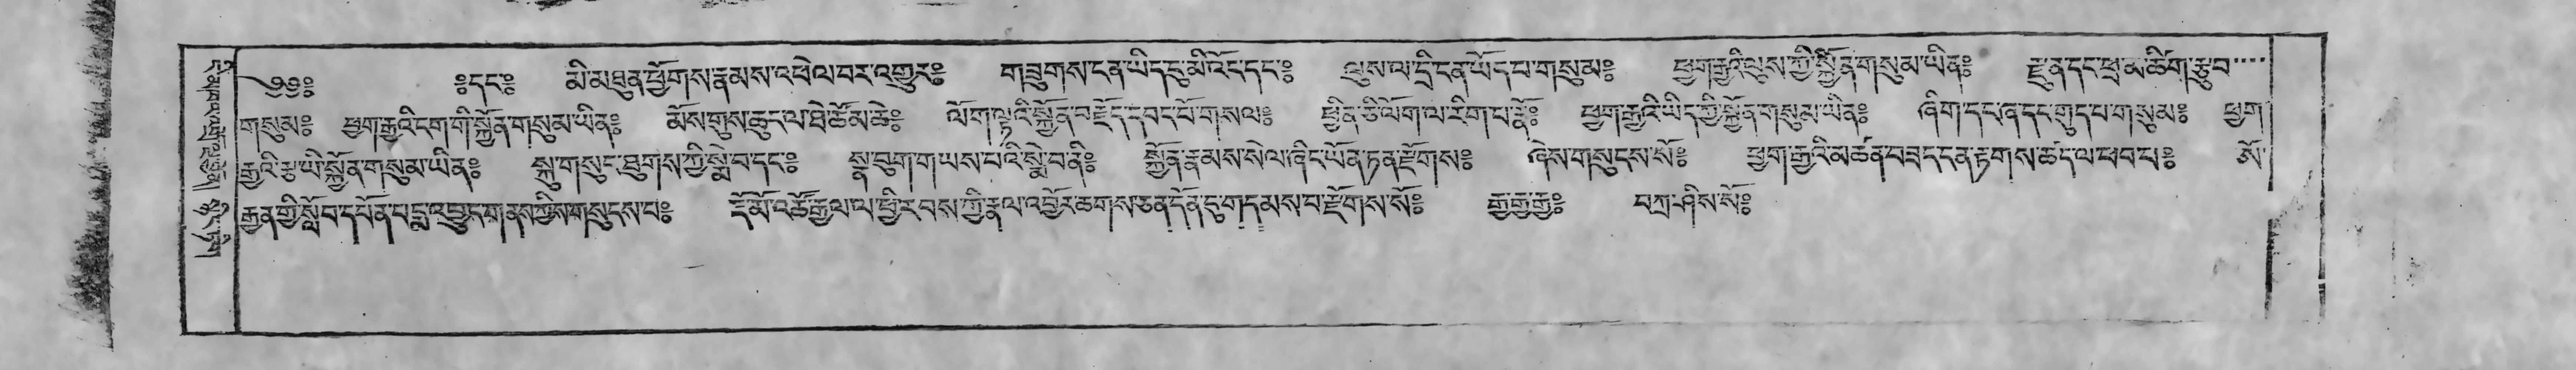 ༄༅༔ ༔དང༔ མི་མཐུན་ཕྱོགས་རྣམས་འཕེལ་བར་འགྱུར༔ གཟུགས་ངན་ཡིད་དུ་མི་འོང་དང༔ ལུས་ལ་དྲི་ངན་ཡོད་པ་གསུམ༔ ཕྱག་རྒྱའི་ལུས་ཀྱི་སྐྱོན་གསུམ་ཡིན༔ རྫུན་དང་ཕྲ་མ་ཚིག་རྩུབ་
གསུམ༔ ཕྱག་རྒྱའི་ངག་གི་སྐྱོན་གསུམ་ཡིན༔ མོས་གུས་ཆུང་ལ་ཐེ་ཚོམ་ཆེ༔ ལོག་ལྟའི་སྐྱོན་བརྗོད་དབང་པོ་གསལ༔ ཕྱིན་ཅི་ལོག་ལ་རིག་པ་རྣོ༔ ཕྱག་རྒྱའི་ཡིད་ཀྱི་སྐྱོན་གསུམ་ཡིན༔ ཞིག་དང་ཞ་དང་གུད་པ་གསུམ༔ ཕྱག
རྒྱའི་རྩ་ཡི་སྐྱོན་གསུམ་ཡིན༔ སྐུ་གསུང་ཐུགས་ཀྱི་སྨེ་བ་དང༔ སྣ་བུག་ག་ཡས་པའི་སྨེ་བ་ནི༔ སྐྱོན་རྣམས་སེལ་ཞིང་ཡོན་ཏན་རྫོགས༔ ཞེས་གསུངས་སོ༔ ཕྱག་རྒྱའི་མཚན་བཟང་ངན་རྟགས་ཚད་ལ་ཕབ་པ༔ ཨོ
རྒྱན་གྱི་སློབ་དཔོན་པདྨ་འབྱུང་གནས་ཀྱིས་གསུངས་པ༔ ངོ་མོ་འཚོ་རྒྱལ་ལ་ཕྱི་རབས་ཀྱི་རྣལ་འབྱོར་ཆགས་ཅན་དོན་དུ་གདམས་པ་རྫོགས་སོ༔ རྒྱ་རྒྱ་རྒྱ༔ བཀྲ་ཤིས་སོ༔